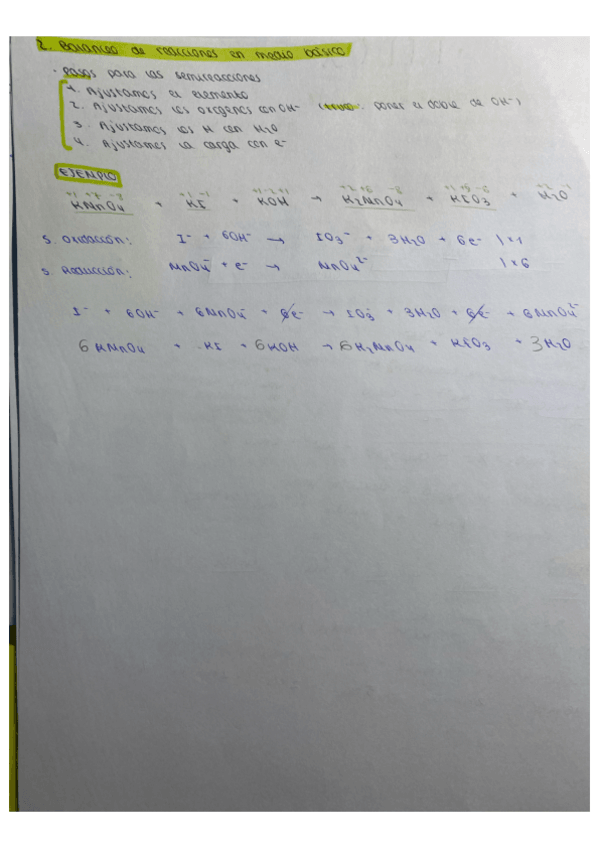 2. Balanceo de reacciones en medio básico
· Pasos para las semirreacciones
1. Ajustamos el elemento
2. Ajustamos los oxígenos con OH⁻ (truco: poner el doble de OH⁻)
3. Ajustamos los H con H₂O
4. Ajustamos la carga con e⁻
EJEMPLO
+1 +7 -8 +1 -1 +1 -2 +1 +2 +6 -8 +1 +5 -6 +2
KMnO₄ + KI + KOH → K₂MnO₄ + KIO₃ + H₂O
S. Oxidación: I⁻ + 6OH⁻ → IO₃⁻ + 3H₂O + 6e⁻ ) x 1
S. Reducción: MnO₄⁻ + e⁻ → MnO₄²⁻ ) x 6
I⁻ + 6OH⁻ + 6MnO₄⁻ + 6e⁻ → IO₃⁻ + 3H₂O + 6e⁻ + 6MnO₄²⁻
6 KMnO₄ + KI + 6 KOH → 6 K₂MnO₄ + KIO₃ + 3H₂O